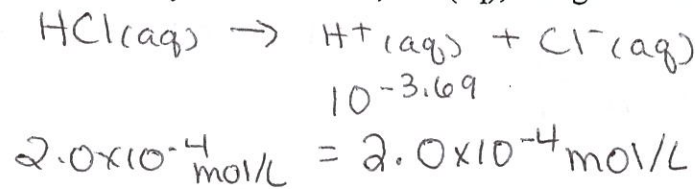 HCl(aq) → H⁺(aq) + Cl⁻(aq)
10⁻³·⁶⁹
2.0×10⁻⁴ mol/L = 2.0×10⁻⁴ mol/L